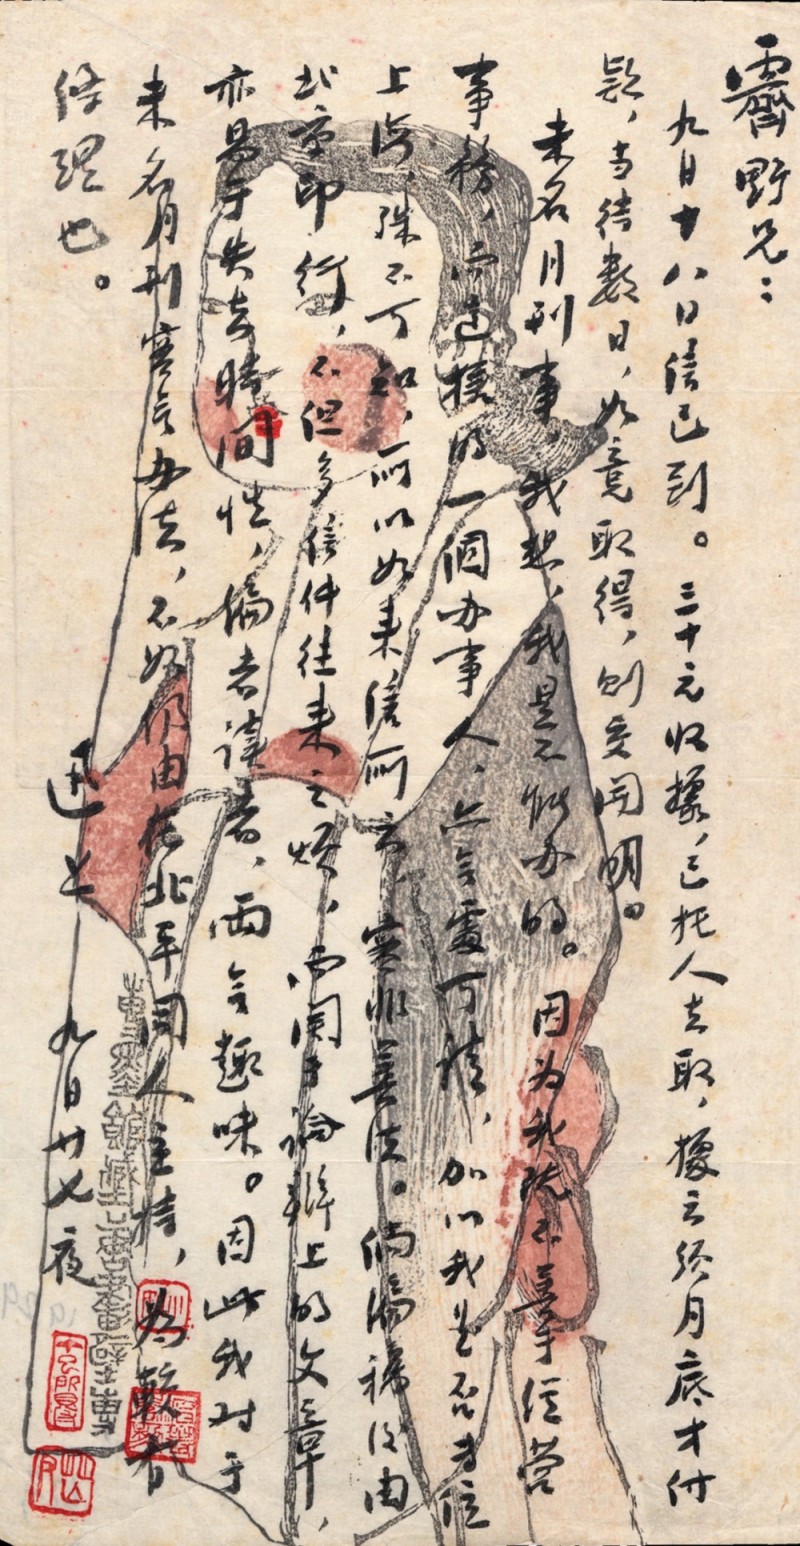 霽野兄：
九月十八日信已到。三十元收據，已托人去取，據云須月底才付
款，当待數日，如竟取得，則交開明。
未名月刊事，我想，我是不能办的。因为我既不善于經营
事務，而這樣的一個办事人，亦无處可請，加以我是否专住
上海，殊不可知，所以如来信所云，實非善法。倘编稿后由
北京印行，不但多信件往来之烦，而関于論辯上的文章，
亦易于失去時间性，编者讀者，兩无趣味。因此我对于
未名月刊實无办法，不如仍由在北平同人主持，为較有
條理也。
迅上 九月廿七夜